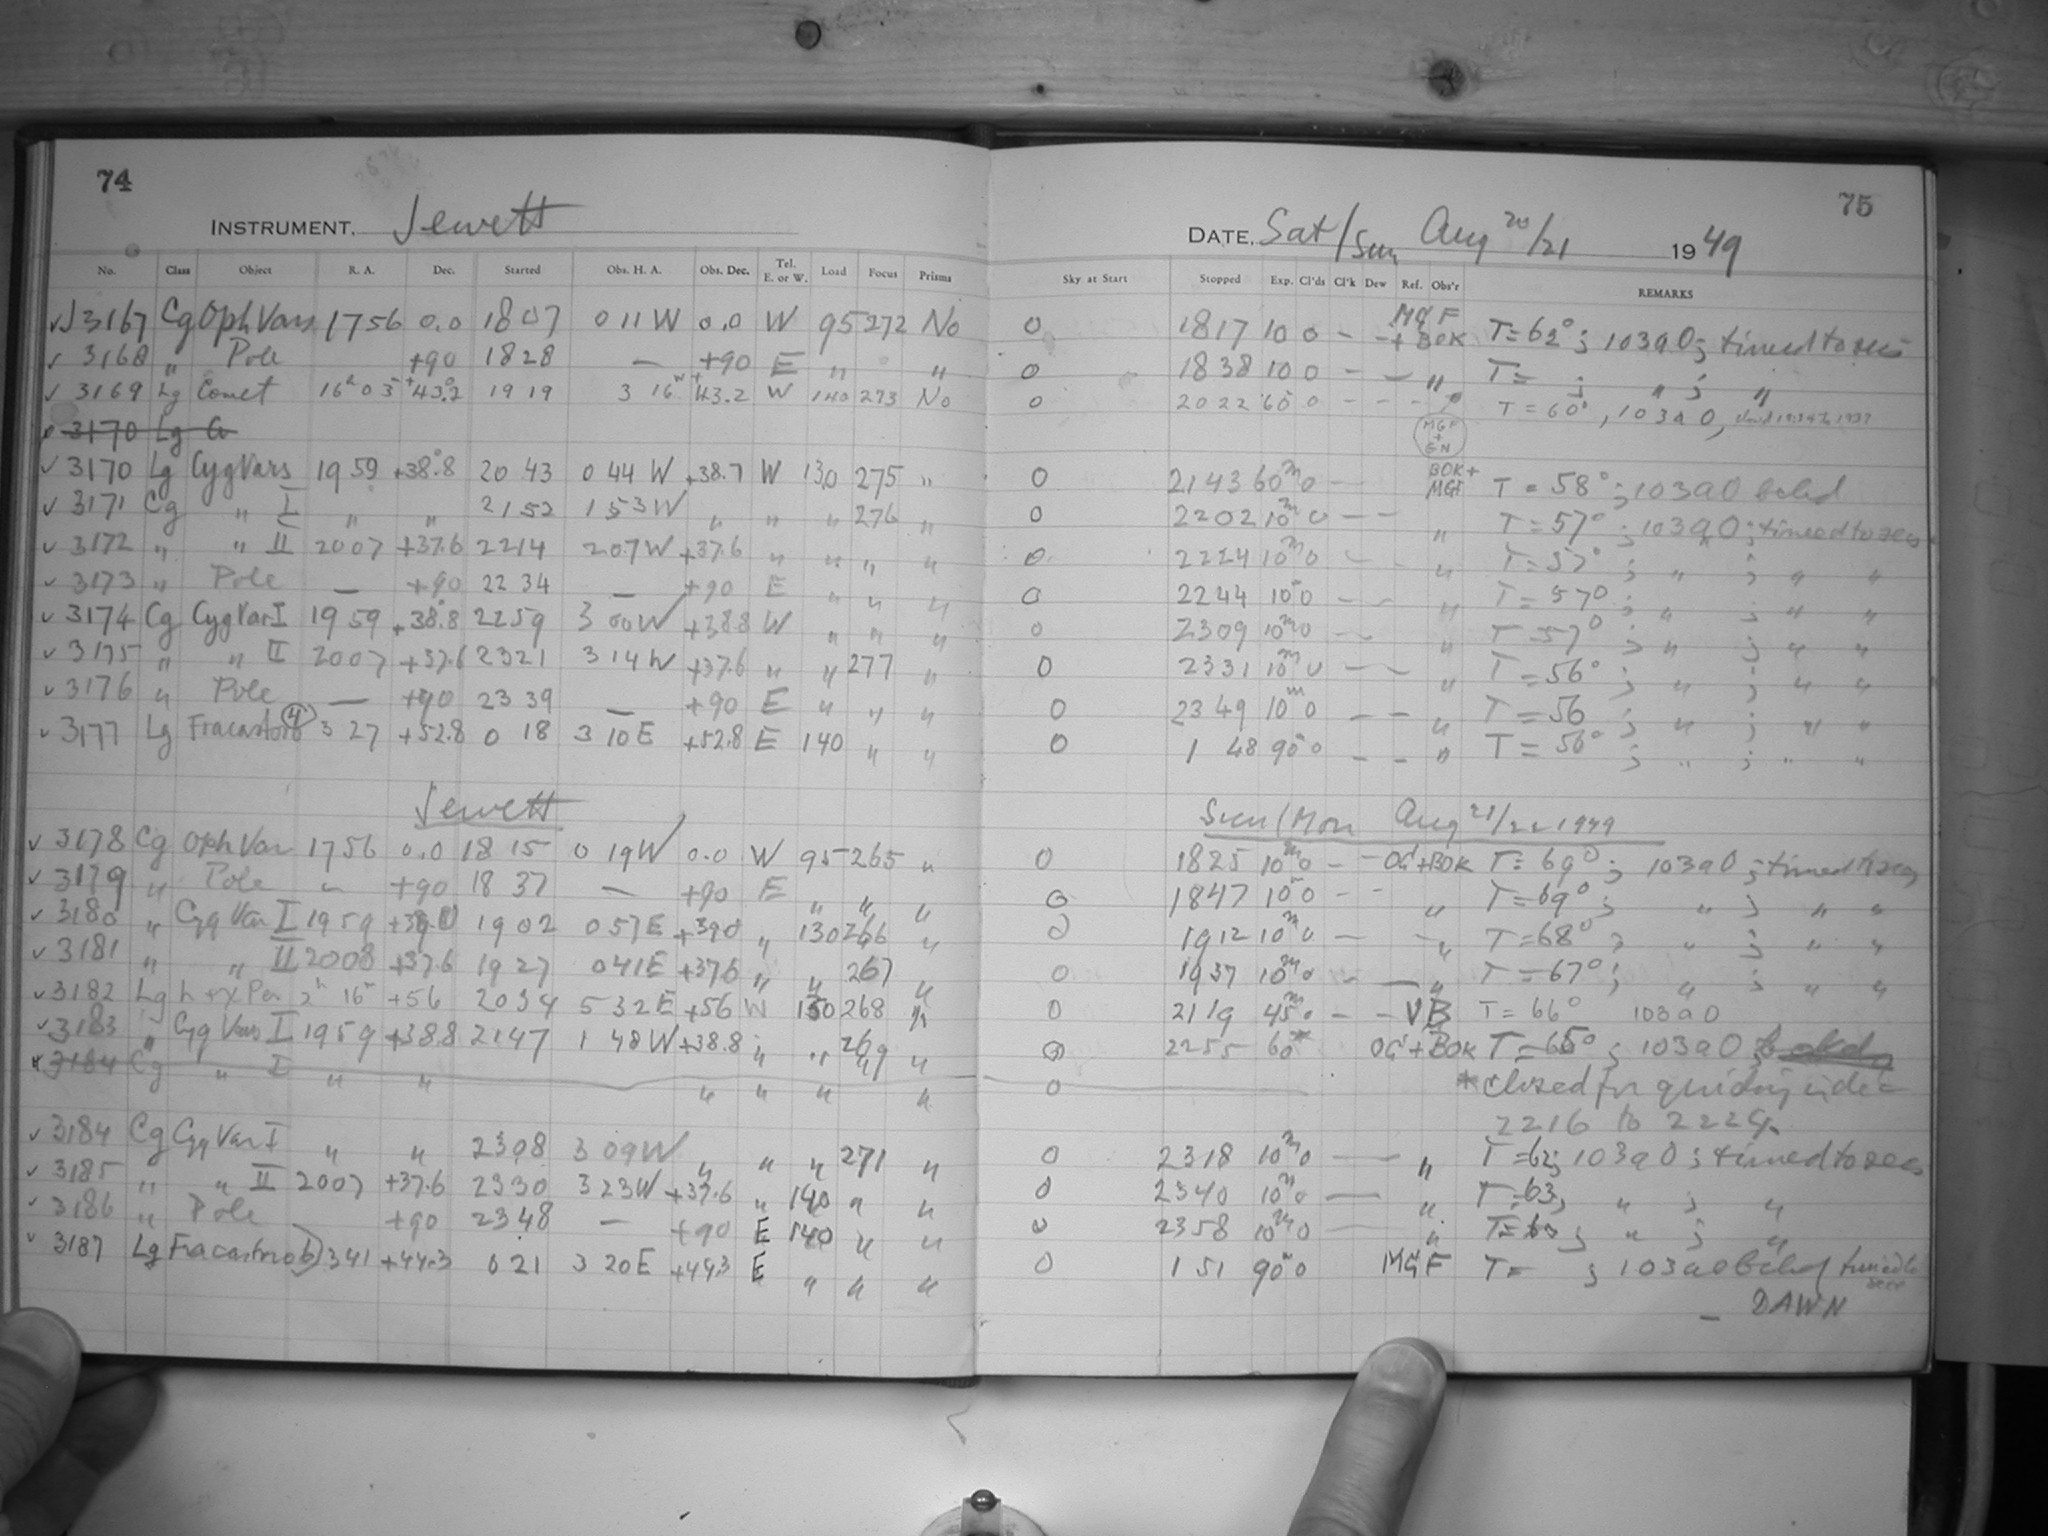 74
INSTRUMENT. Jewett
No. Class Object R. A. Dec. Started Obs. H. A. Obs. Dec. Tel. E. or W. Load Focus Prisms
√ J 3167 Cg Oph Vars 1756 0.0 1807 0 11 W 0.0 W 95 272 No
√ 3168 " Pole +90 1828 — +90 E " "
√ 3169 Lg Comet 16h 03 +43.2 19 19 3 16 W +43.2 W 140 273 No
3170 Lg C
√ 3170 Lg Cyg Vars 19 59 +38.8 20 43 0 44 W +38.7 W 130 275 "
√ 3171 Cg " I " " 2152 1 53 W " " " 276 "
√ 3172 " " II 2007 +37.6 2214 2 07 W +37.6 " " " "
√ 3173 " Pole — +90 22 34 — +90 E " " "
√ 3174 Cg Cyg Var I 19 59 +38.8 2259 3 00 W +38.8 W " " "
√ 3175 " " II 2007 +37.6 2321 3 14 W +37.6 " " 277 "
√ 3176 " Pole — +90 23 39 — +90 E " " "
√ 3177 Lg Fracastoro 4 3 27 +52.8 0 18 3 10 E +52.8 E 140 " "
Jewett
√ 3178 Cg Oph Var 1756 0.0 18 15 0 19 W 0.0 W 95 265 "
√ 3179 " Pole ~ +90 18 37 — +90 E " " "
√ 3180 " Cyg Var I 1959 +39.0 1902 0 57 E +39.0 " 130 266 "
√ 3181 " " II 2008 +37.6 1927 0 41 E +37.6 " " 267 "
√ 3182 Lg h + χ Per 2h 16m +56 2034 5 32 E +56 W 150 268 "
√ 3183 " Cyg Vars I 1959 +38.8 2147 1 48 W +38.8 " " 269 "
3184 Cg " I " " " " " "
√ 3184 Cg Cyg Var I " " 2308 3 09 W " " " 271 "
√ 3185 " " II 2007 +37.6 2330 3 23 W +37.6 " 140 " "
√ 3186 " Pole +90 2348 — +90 E 140 " "
√ 3187 Lg Fracastoro 6) 341 +44.3 0 21 3 20 E +44.3 E " " "
75
DATE. Sat/Sun Aug 20/21 1949
Sky at Start Stopped Exp. Cl'ds Cl'k Dew Ref. Obs'r REMARKS
0 1817 10 0 — — MGF + BOK T = 62° ; 103aO ; timed to secs
0 1838 10 0 — — " T = ; " ; "
0 2022 60 0 — — — " T = 60°, 103aO,
MGF + GN
0 2143 60m 0 — BOK + MGF T = 58° ; 103aO bckd
0 2202 10m 0 — — " T = 57° ; 103aO ; timed to secs
0 2224 10m 0 — — " T = 57° ; " ; " "
0 2244 10m 0 — — " T = 57° ; " ; " "
0 2309 10m 0 — — " T = 57° ; " ; " "
0 2331 10m 0 — — " T = 56° ; " ; " "
0 2349 10m 0 — — " T = 56 ; " ; " "
0 1 48 90m 0 — — " T = 56° ; " ; " "
Sun/Mon Aug 21/22 1949
0 1825 10m 0 — — OG + BOK T = 69° ; 103aO ; timed to secs
0 1847 10m 0 — — " T = 69° ; " ; " "
0 1912 10m 0 — — " T = 68° ; " ; " "
0 1937 10m 0 — — " T = 67° ; " ; " "
0 2119 45m 0 — — VB T = 66° 103aO
0 2255 60* OG + BOK T = 65° ; 103aO ;
0 * closed for guiding
2216 to 2224.
0 2318 10m 0 — " T = 62 ; 103aO ; timed to secs
0 2340 10m 0 — " T = 63 ; " ; "
0 2358 10m 0 — " T = 60 ; " ; "
0 1 51 90m 0 MGF T = ; 103aO bckd timed to secs
— DAWN